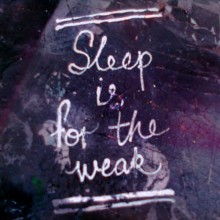 Sleep
is
for the
weak